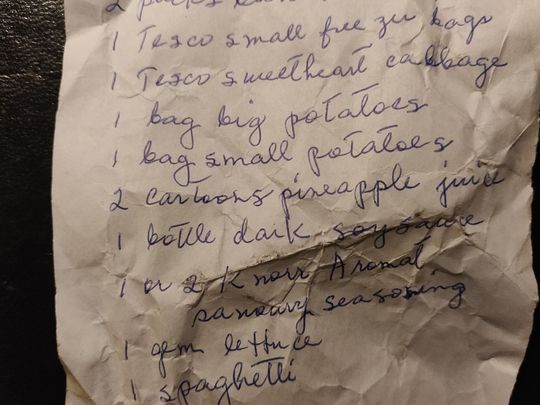 2 packs
1 Tesco small freezer bags
1 Tesco sweetheart cabbage
1 bag big potatoes
1 bag small potatoes
2 cartoons pineapple juice
1 bottle dark soy sauce
1 or 2 Knorr Aromat
savoury seasoning
1 gem lettuce
1 spaghetti